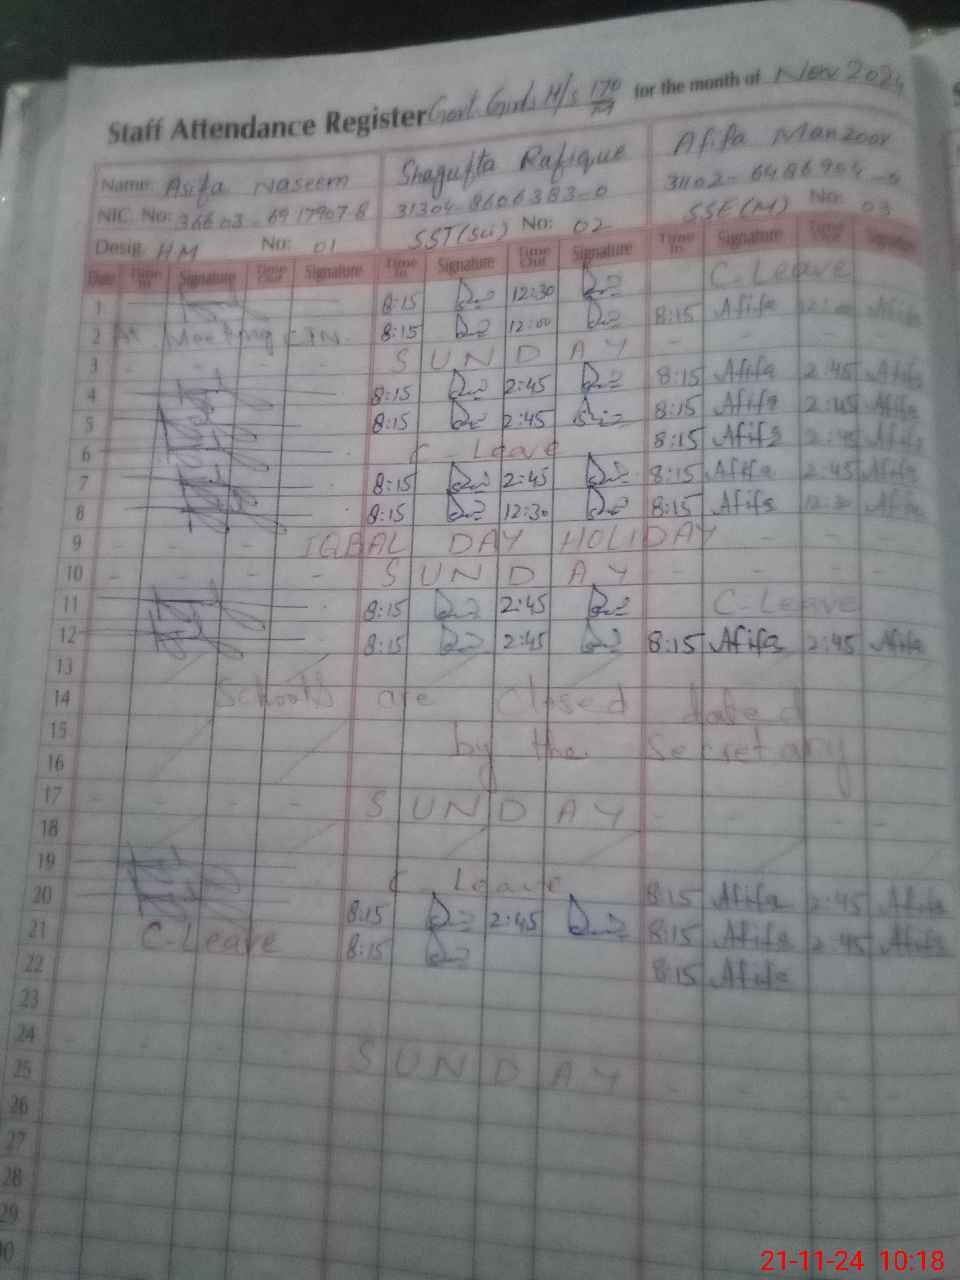 Staff Attendance Register Govt. Girls H/S 170 for the month of Nov 2024
Name: Asifa Naseem Shagufta Rafique Afifa Manzoor
NIC. No: 36603-6917907-8 31304-8606383-0 31102-6486904-
Desig. HM No: 01 SST(Sci) No: 02 SSE(M) No: 03
Date Time In Signature Time Out Signature Time In Signature Time Out Signature Time In Signature Time Out Signature
1 8:15 12:30 C-Leave
2 Meeting 8:15 12:00 8:15 Afifa Afifa
3 - SUNDAY - - -
4 8:15 2:45 8:15 Afifa 2:45 Afifa
5 8:15 2:45 8:15 Afifa 2:45 Afifa
6 C-Leave 8:15 Afifa 2:45 Afifa
7 8:15 2:45 8:15 Afifa 2:45 Afifa
8 8:15 12:30 8:15 Afifa 12:30 Afifa
9 - - - IQBAL DAY HOLIDAY - - -
10 - - - - SUNDAY - - - -
11 8:15 2:45 C-Leave
12 8:15 2:45 8:15 Afifa 2:45 Afifa
13
14 Schools are closed dated
15 by the Secretary
16
17 - - - - SUNDAY - - - -
18
19
20 C-Leave 8:15 Afifa 2:45 Afifa
21 8:15 2:45 8:15 Afifa 2:45 Afifa
22 C-Leave 8:15 8:15 Afifa
23
24 - - - - SUNDAY - - - -
25
26
27
28
29
30
21-11-24 10:18